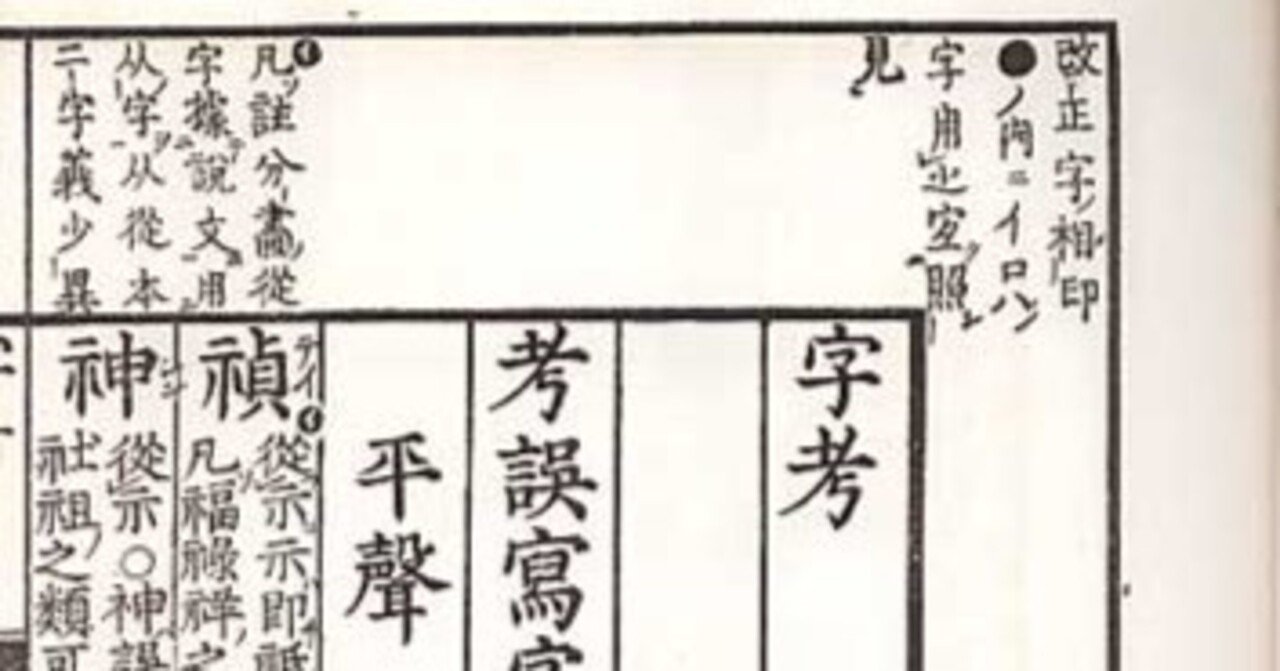 改正字ノ相印
●ノ内ニイロハノ
字用
照
見
凡ソ註分ノ畫從
字據說文用
从ノ字从從本
二字義少異
字考
考誤寫字
平聲
禎テイ
從示示即
凡福祿禅之
神シン
從示○神誤
社祖之類可